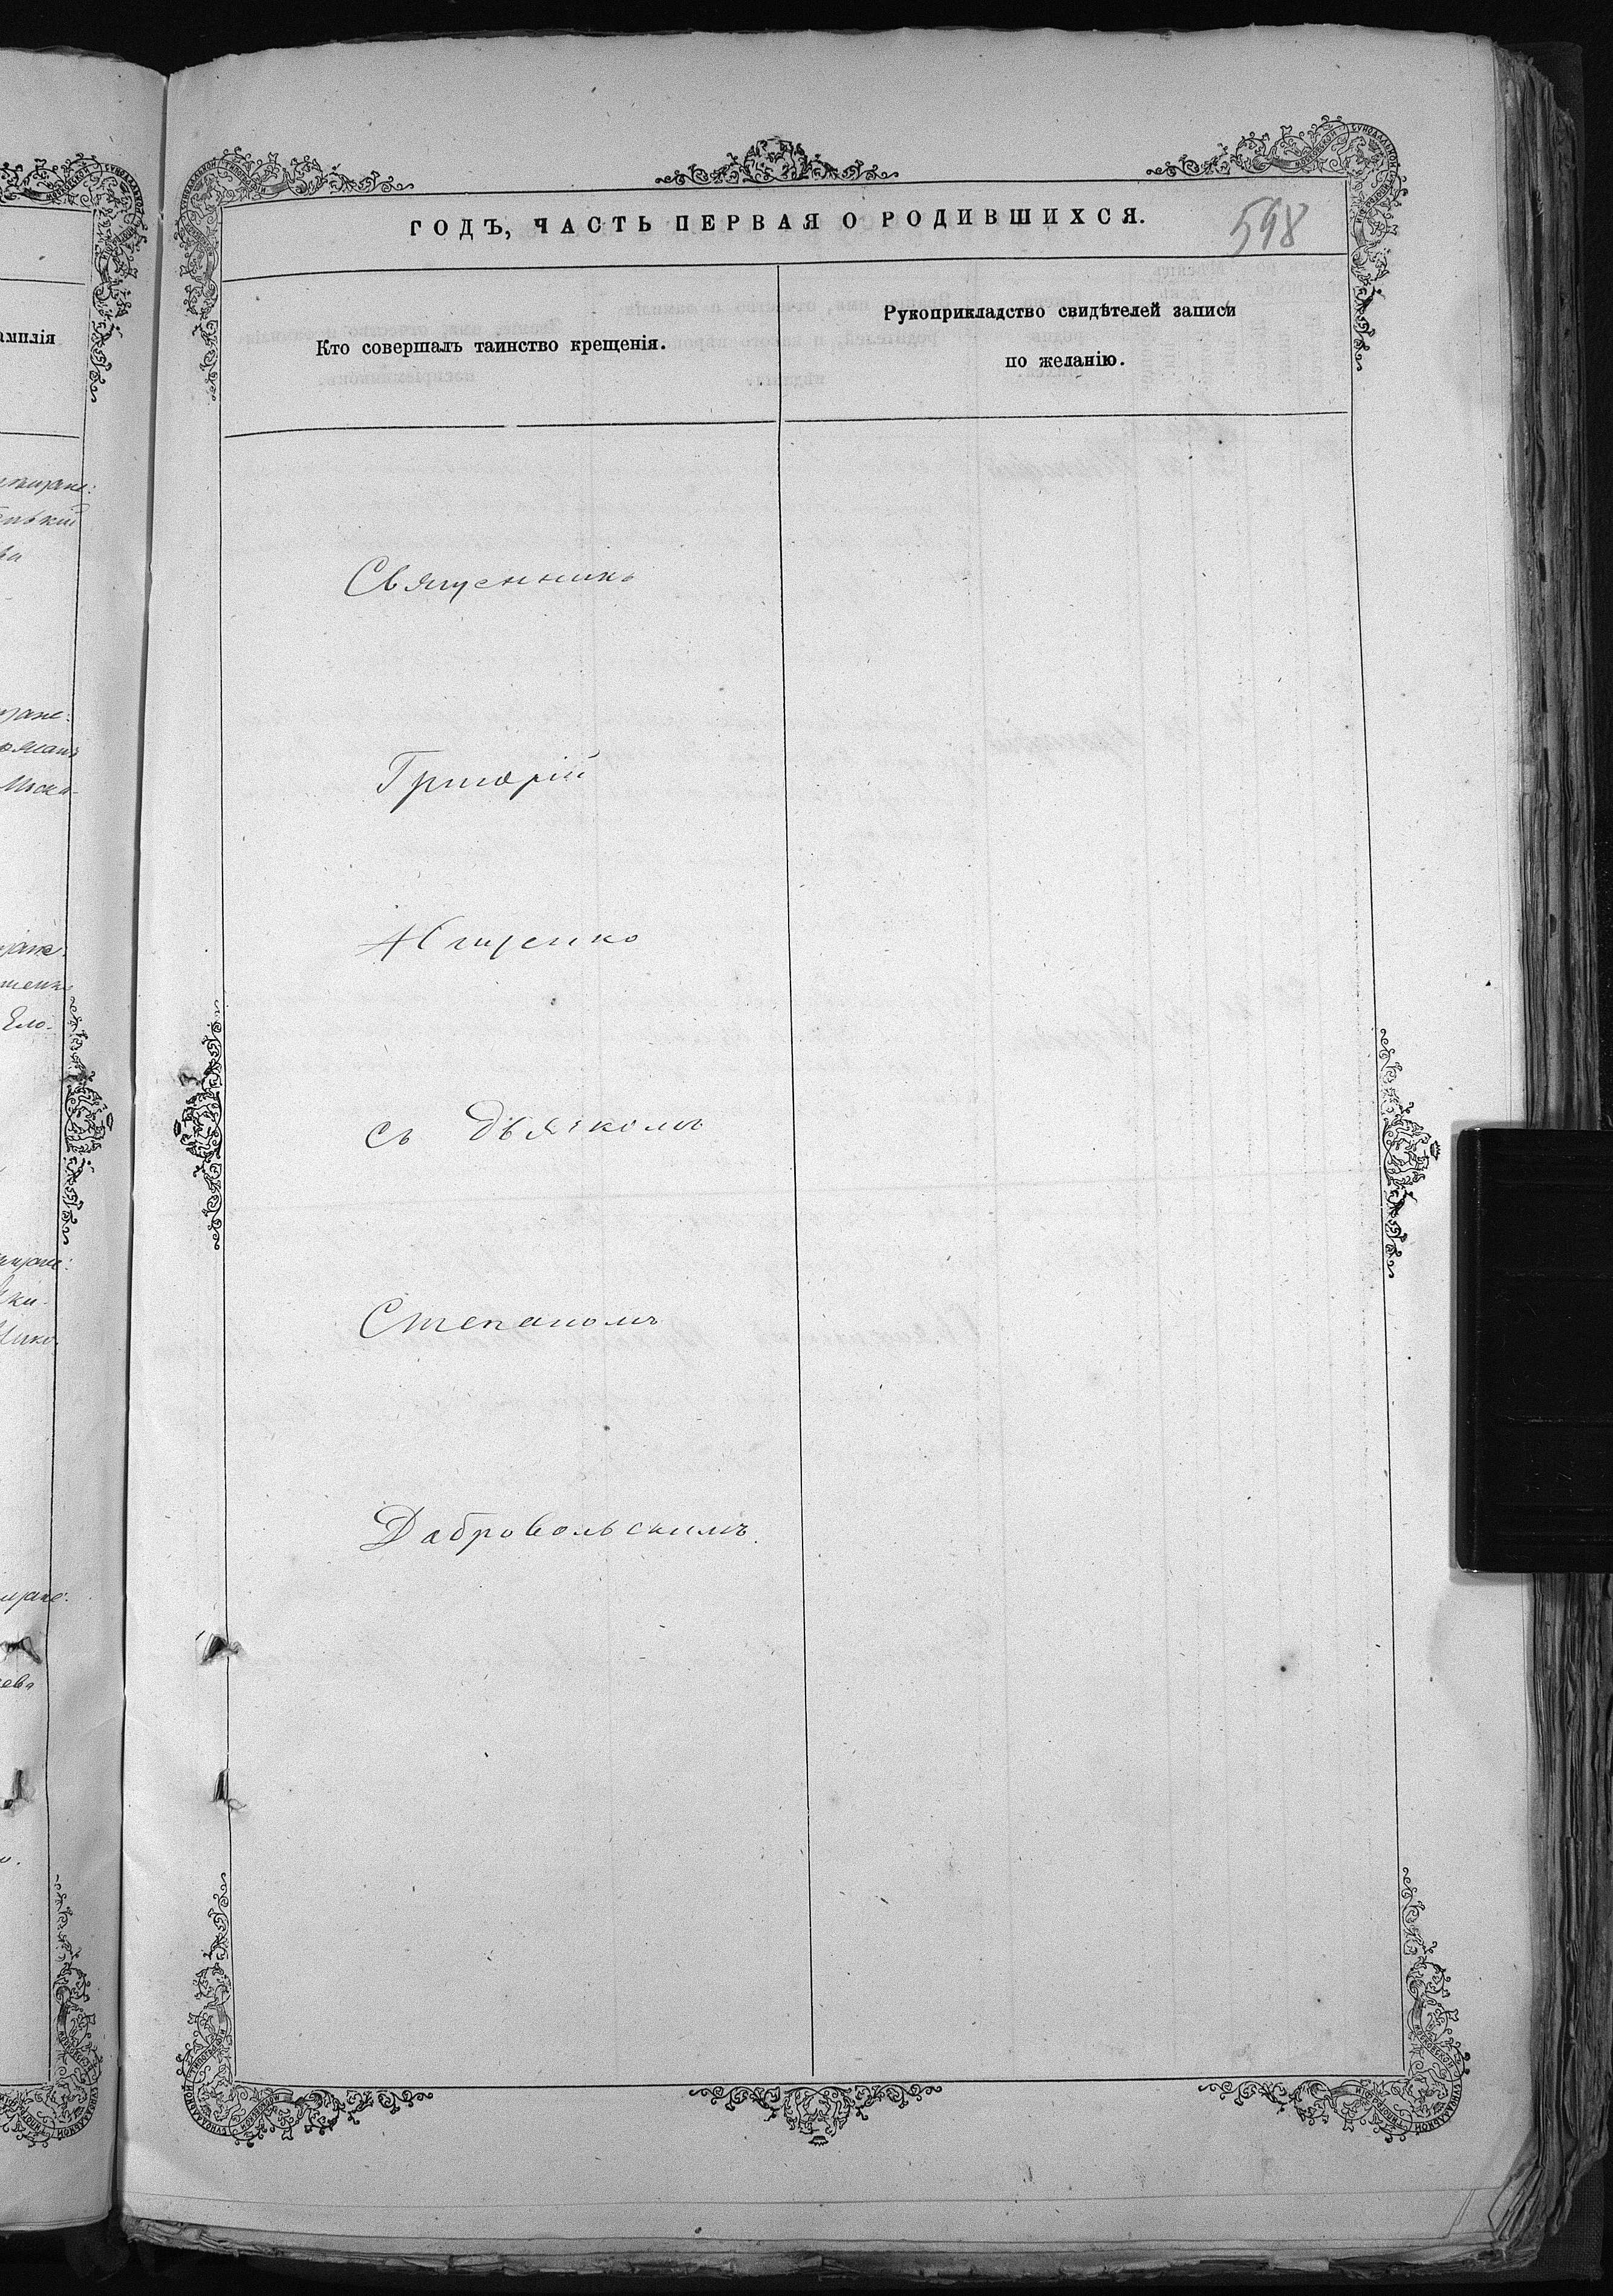 амилія
ГОДЪ, ЧАСТЬ ПЕРВАЯ О РОДИВШИХСЯ.
598
Кто совершалъ таинство крещенія.
Рукоприкладство свидѣтелей записи
по желанію.
Священникъ
Григорій
Ищенко
съ дьячкомъ
Степаномъ
Добровольскимъ.